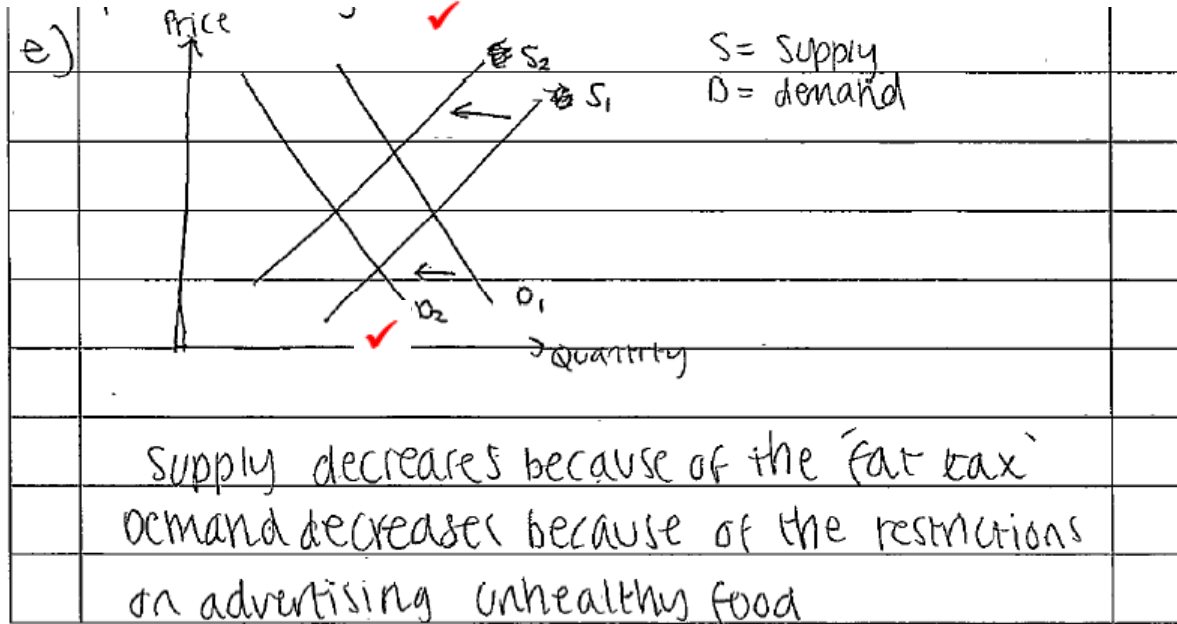 Price
e)
S₂
S₁
S = Supply
D = demand
D₂
D₁
Quantity
Supply decreases because of the 'fat tax'
Demand decreases because of the restrictions
on advertising unhealthy food